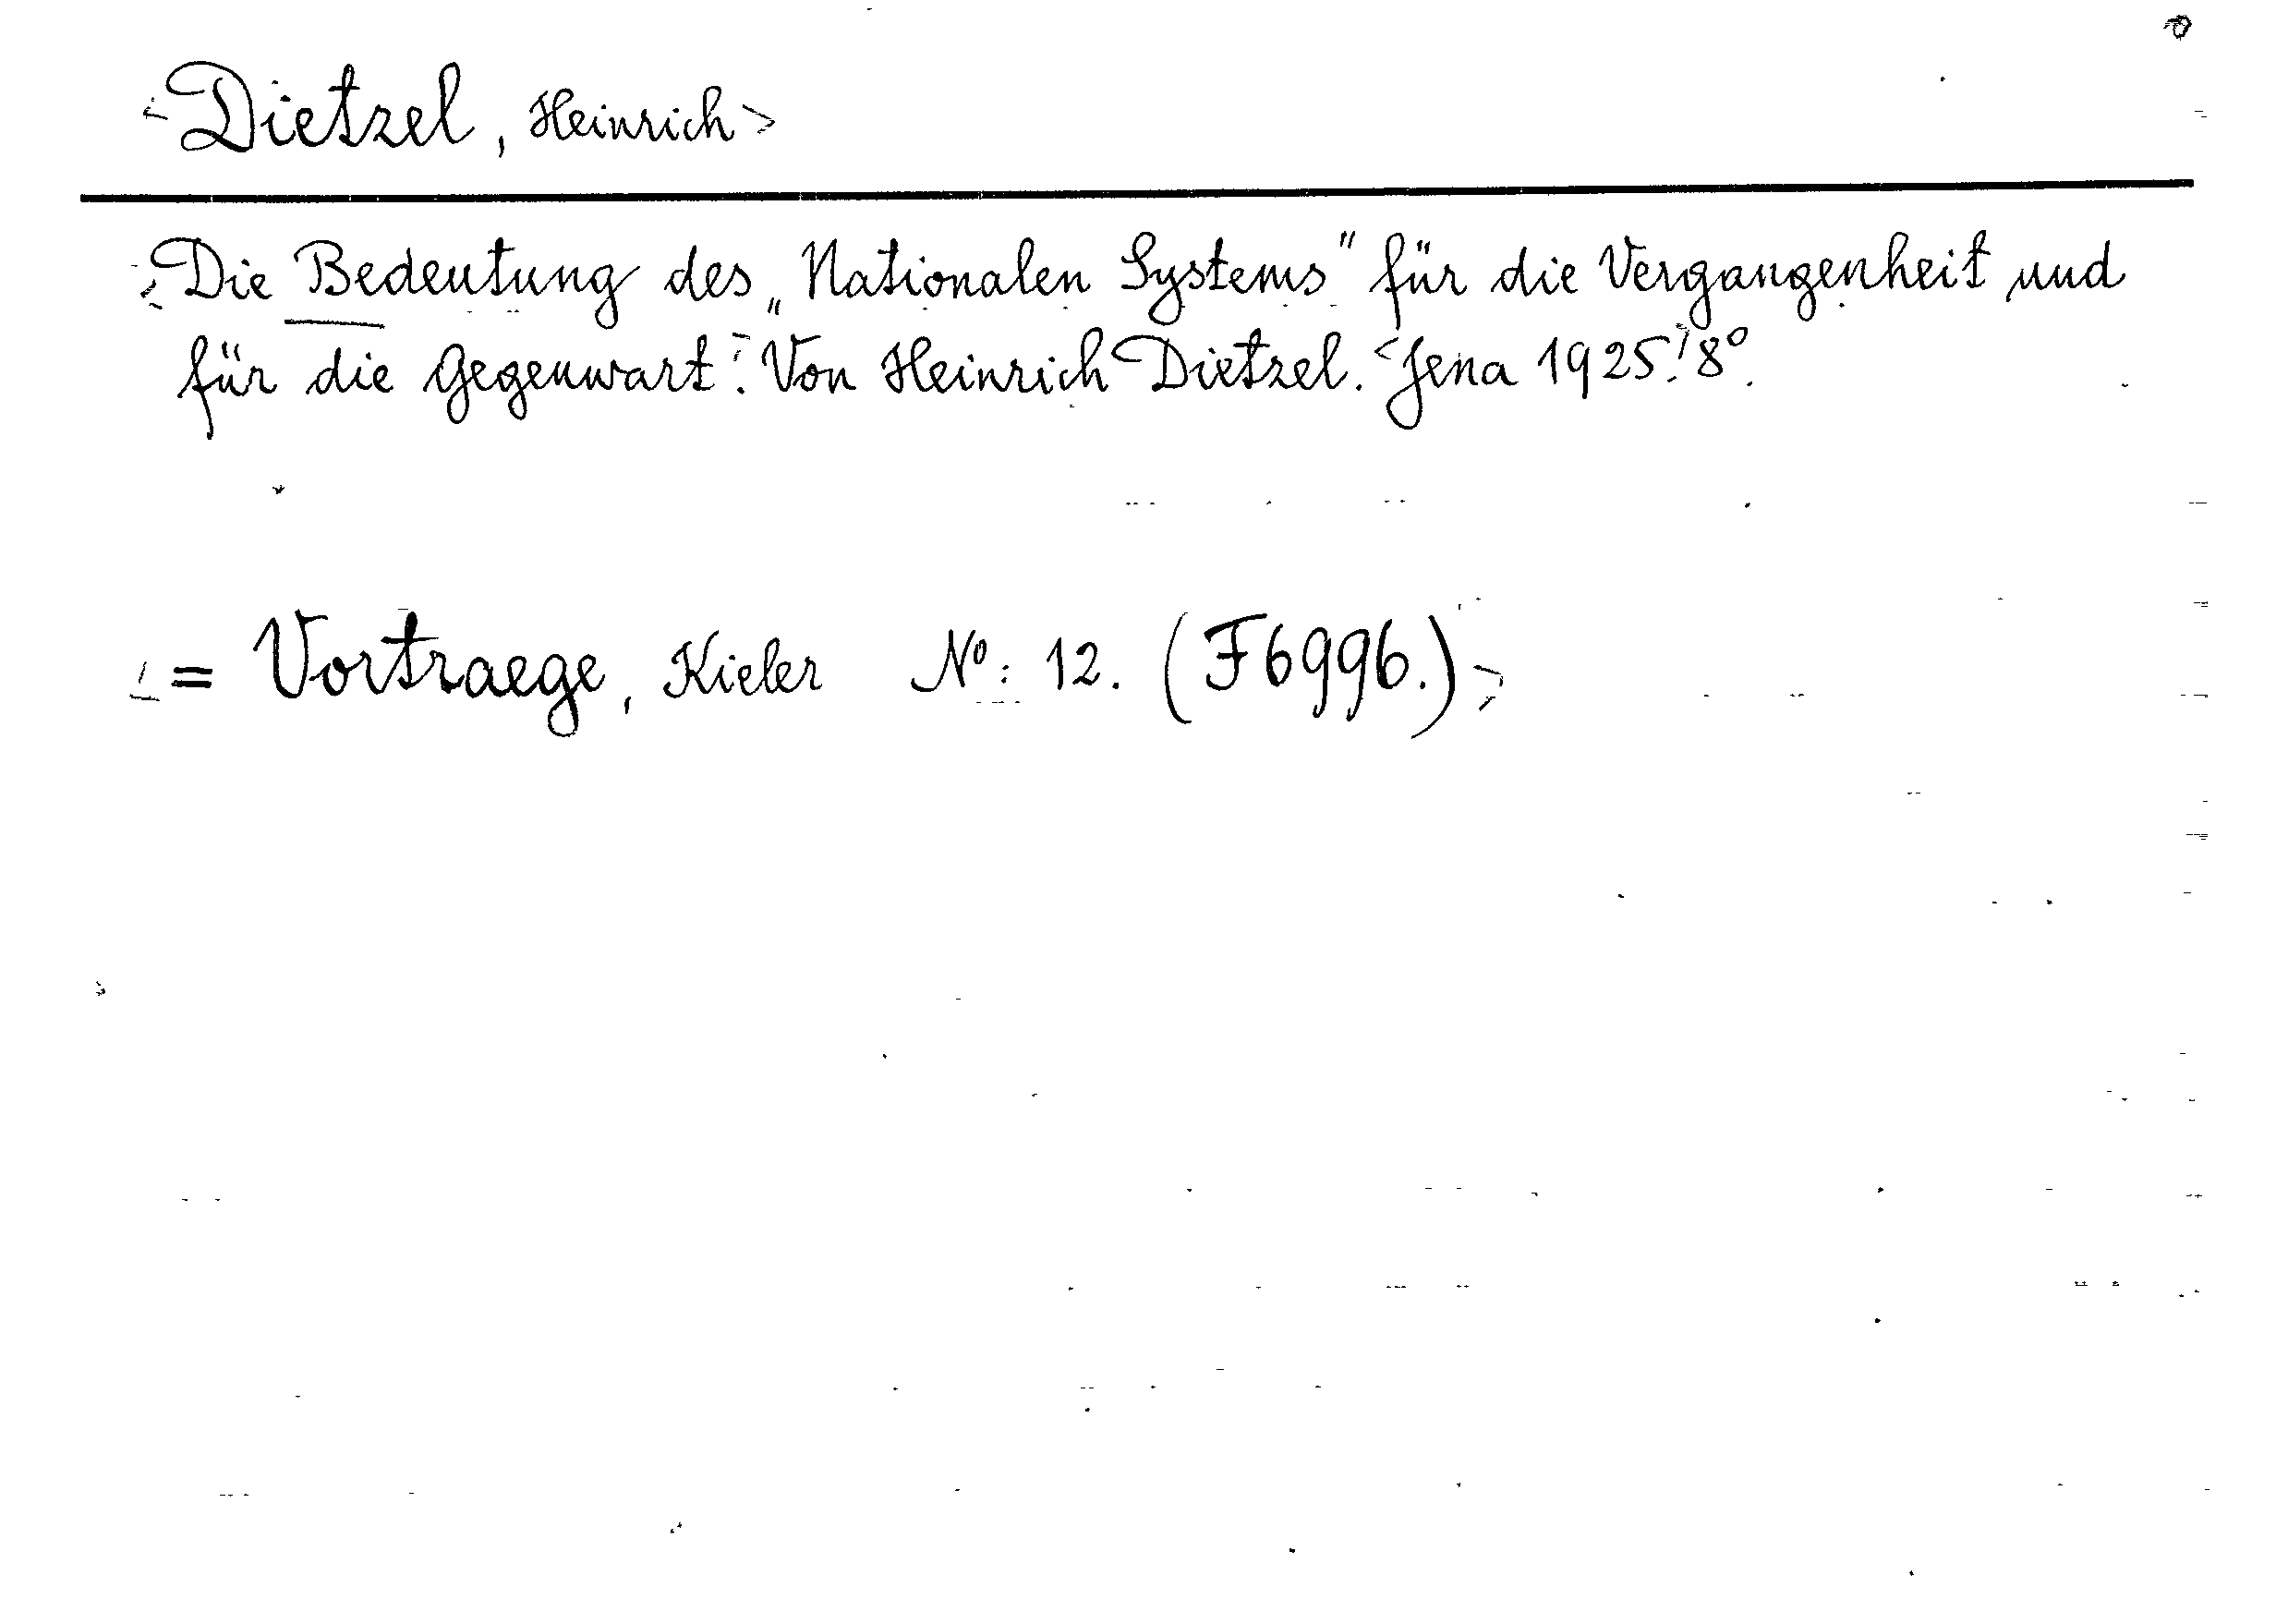 <Dietzel, Heinrich>
<Die Bedeutung des „Nationalen Systems" für die Vergangenheit und
für die Gegenwart.> Von Heinrich Dietzel. <Jena 1925.> 8°.
<= Vortraege, Kieler No: 12. (F6996.)>